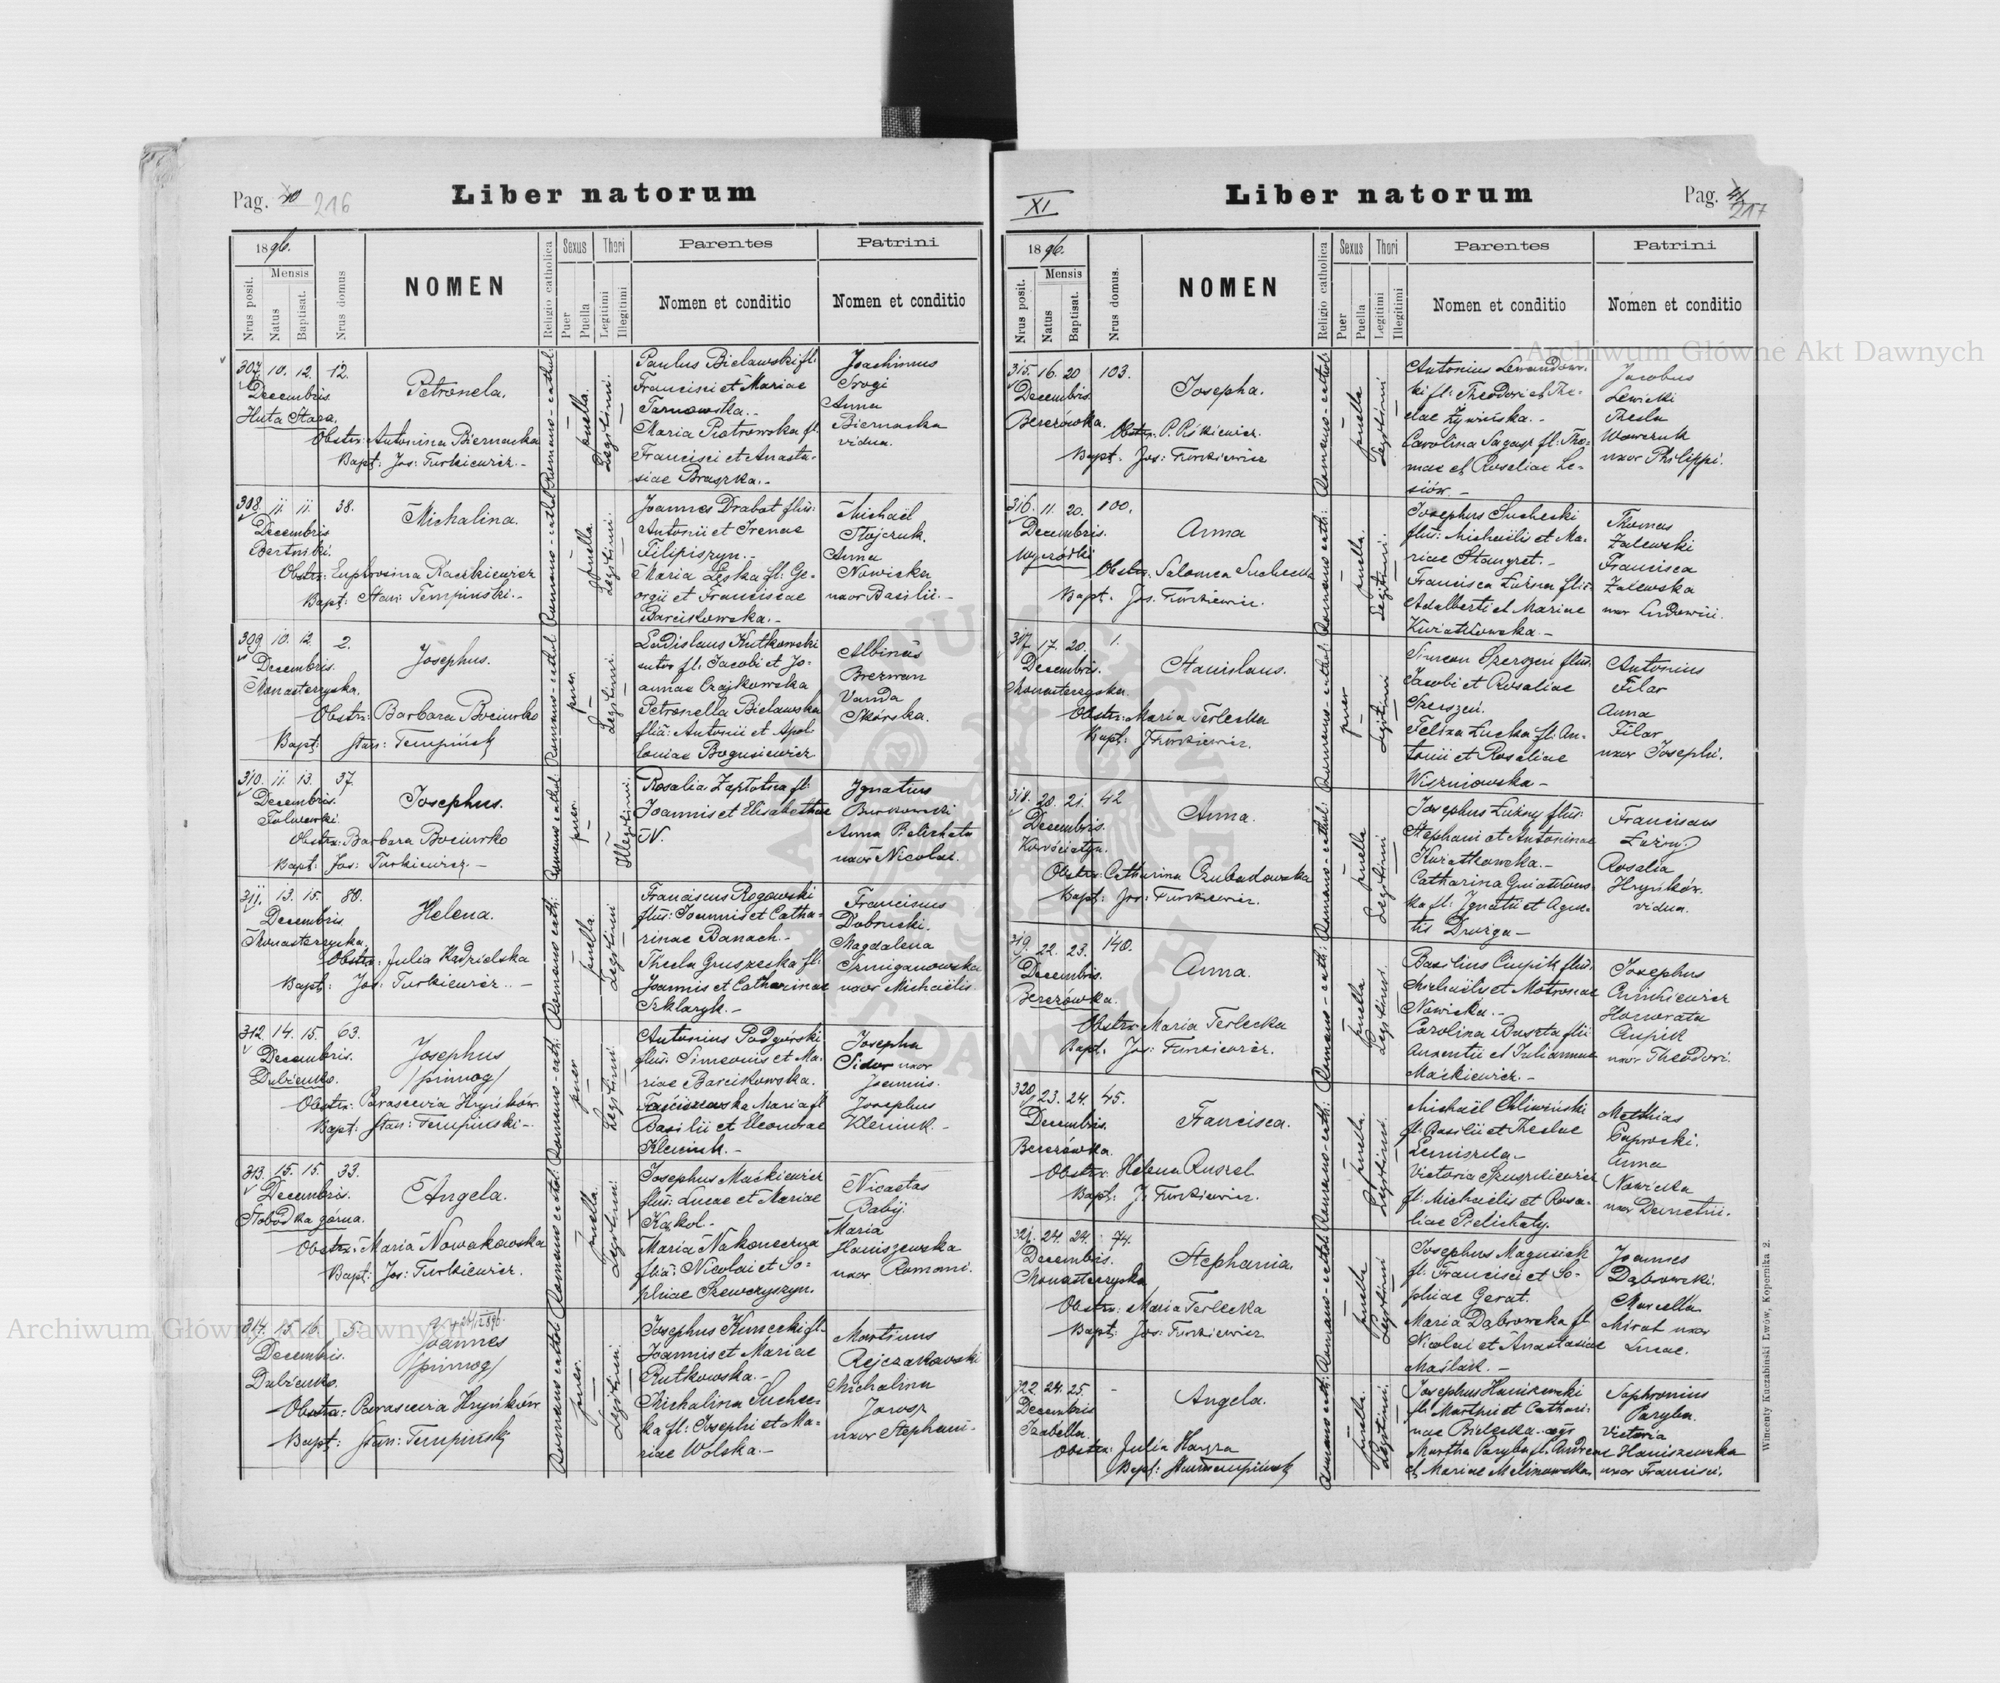 Pag. 40 216
Liber natorum
1896.
Nrus posit.
Mensis
Natus
Baptisat.
Nrus domus
NOMEN
Religio catholica
Sexus
Puer
Puella
Thori
Legitimi
Illegitimi
Parentes
Nomen et conditio
Patrini
Nomen et conditio
307. 10. 12. 12.
Decembris
Huta Stara.
Petronela.
Obstr: Antonina Biernacka
Bapt: Jos: Turkiewicz.-
Romano-cathol:
puella.
Legitimi.
Paulus Bielawski fil:
Francisci et Mariae
Tarnowska.-
Maria Piotrowska fl.
Francisci et Anasta-
siae Braszka.-
Joachimus
Srogi
Anna
Biernacka
vidua.
308. 11. 11. 38.
Decembris
Bertniki.
Michalina.
Obstr: Euphrosina Raczkiewicz
Bapt: Stan: Tempinski.-
Romano-cathol
puella.
Legitimi.
Joannes Drabot flius:
Antonii et Irenae
Filipiszyn.-
Maria Leska fl: Ge-
orgii et Franciscae
Barcikowska.-
Michaël
Stojczuk.
Anna
Nowicka
uxor Basilii.-
309. 10. 12. 2.
Decembris.
Monasterzyska.
Josephus.
Obstr: Barbara Bociurko
Bapt: Stan: Tempiński
Romano-cathol
puer.
Legitimi.
Ladislaus Kutkowski
sutor fl. Jacobi et Jo-
annae Czajkowska
Petronella Bielawska
flia: Antonii et Apol-
loniae Bogusiewicz
Albinus
Brezwan
Vanda
Skórska.
310. 11. 13. 37.
Decembris.
Folwarki.
Josephus.
Obstr: Barbara Bociurko
Bapt: Jos: Turkiewicz.-
Romano-cathol:
puer.
Illegitimi.
Rosalia Zaplotna fl:
Joannis et Elisabethae
N.
Ignatius
Burkowski
Anna Pielichata
uxor Nicolai.
311. 13. 15. 80.
Decembris.
Monasterzyska.
Helena.
Obstr: Julia Kądzielska
Bapt: Jos: Turkiewicz.-
Romano-cath:
puella.
Legitimi
Franciscus Rogowski
flius: Joannis et Catha-
rinae Banach.-
Thecla Gruszecka fl:
Joannis et Catharinae
Szklaryk.-
Franciscus
Dobrucki.
Magdalena
Szmiganowska
uxor Michaëlis
312. 14. 15. 63.
Decembris.
Dubienko.
Josephus
/primog/
Obstr: Parascevia Hryńków.
Bapt: Stan: Tempinski.-
Romano-cath:
puer
Legitimi.
Antonius Podgórski
flius: Simeonis et Ma-
riae Barcikowska.
Maria fl
Basilii et Eleonorae
Kleniuk.-
Josepha
Sidor uxor
Joannis.
Josephus
Kleniuk.-
313. 15. 15. 33.
Decembris.
Słobódka górna.
Angela.
Obstr: Maria Nowakowska
Bapt: Jos: Turkiewicz.
Romano-cathol:
puella.
Legitimi.
Josephus Maćkiewicz
flius: Lucae et Mariae
Kąkol.-
Maria Nakoneczna
flia: Nicolai et So-
phiae Szewczyszyn.
Nicaetas
Babij.
Maria
Haniszewska
uxor Romani.
314. 15. 16. 5.
Decembris.
Dubienko.
Joannes
/primog/
Obstr: Parascevia Hryńków
Bapt: Stan: Tempiński
Romano cathol:
puer.
Legitimi.
Josephus Kunecki fl.
Joannis et Mariae
Rutkowska.-
Michalina Suchec-
ka fl: Josephi et Ma-
riae Wolska.-
Martinus
Rejczakowski
Michalina
Jarosz
uxor Stephani.
XI
Liber natorum
Pag. 41 217
1896.
Nrus posit.
Mensis
Natus
Baptisat.
Nrus domus.
NOMEN
Religio catholica
Sexus
Puer
Puella
Thori
Legitimi
Illegitimi
Parentes
Nomen et conditio
Patrini
Nomen et conditio
315. 16. 20 103.
Decembris.
Berezówka.
Josepha.
Obstr: P. Piśkiewicz.
Bapt. Jos: Turkiewicz
Romano-cathol:
puella
Legitimi
Antonius Lewandows-
ki fl: Theodori et The-
clae Żywińska.-
Carolina Sagasz fl: Tho-
mae et Rosaliae Le-
siów.-
Jacobus
Lewicki
Thecla
Wawruk
uxor Philippi.
316. 11. 20. 100.
Decembris.
Wyczółki
Anna
Obstr: Salomea Suchecka
Bapt. Jos. Turkiewicz.
Romano cath:
puella.
Legitimi.
Josephus Suchecki
flius: Michaëlis et Ma-
riae Stangret.-
Francisca Luźna flia:
Adalberti et Mariae
Kwiatkowska.-
Thomas
Zalewski
Francisca
Zalewska
uxor Ludovici.
317. 17. 20. 1.
Decembris.
Monasterzyska.
Stanislaus.
Obstr: Maria Terlecka
Bapt: J. Turkiewicz.
Romano-cathol:
puer
Legitimi
Simeon Szerszeń flius.
Jacobi et Rosaliae
Szerszeń.
Felixa Lucka fl: An-
tonii et Rosaliae
Wiszniowska-
Antonius
Filar
Anna
Filar
uxor Josephi.
318. 20. 21. 42
Decembris.
Korościatyn.
Anna.
Obstr: Catharina Czubadowska
Bapt: Jos: Turkiewicz.
Romano-cathol:
puella
Legitimi
Josephus Luźny flius:
Stephani et Antoninae
Kwiatkowska.-
Catharina Gwiatkows-
ka fl: Ignatii et Agne-
tis Drużga-
Franciscus
Luźny
Rosalia
Hryńków.
vidua.
319. 22. 23. 140.
Decembris.
Berezówka.
Anna.
Obstr: Maria Terlecka
Bapt. Jos: Turkiewicz.
Romano-cath:
puella
Legitimi.
Basilius Czupik flius.
Michaëlis et Motronae
Nowicka.-
Carolina Baszta flia
Auxentii et Juliannae
Maćkiewicz.-
Josephus
Honorata
Czupik
uxor Theodori.
320. 23. 24. 45.
Decembris.
Berezówka.
Francisca.
Obstr: Helena Ruszel
Bapt: J: Turkiewicz.
Romano-cath:
puella.
Legitimi.
Michaël Chliwiński
fl. Basilii et Theclae
Lemiszela-
Victoria Szuszkiewicz
fl: Michaëlis et Rosa-
liae Pielichaty.
Matthias
Gaprocki.
Anna
Nowicka
uxor Demetrii.
321. 24. 24. 74.
Decembris.
Monasterzyska
Stephania.
Obstr: Maria Terlecka
Bapt: Jos: Turkiewicz
Romano-cathol:
puella
Legitimi
Josephus Magusiak
fl: Francisci et So-
phiae Gerat.
Maria Dąbrowska fl
Nicolai et Anastasiae
Maślak.-
Joannes
Dąbrowski.
Marcella
Mirat uxor
Lucae.
322. 24. 25. -
Decembris
Izabella.
Angela.
Obstr: Julia Hayza
Romano cath:
puella.
Legitimi.
Josephus Haniszewski
fl: Martini et Cathari-
nae Bielecka.
Martha Paryba fl. Andreae
et Mariae Melinowska.
Sophronius
Paryba.
Victoria
Haniszewska
uxor Francisci.
Wincenty Kuczabiński Lwów, Kopernika 2.
Archiwum Główne Akt Dawnych
Archiwum Główne Akt Dawnych
ARCHIWUM GŁÓWNE AKT DAWNYCH